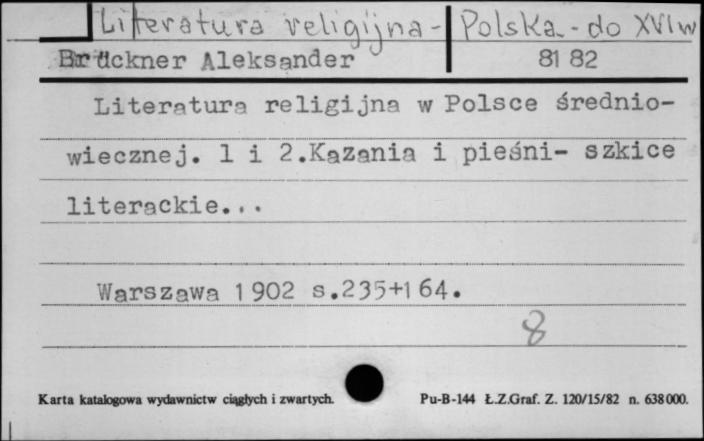 Literatura religijna - Polska - do XVI w
Brückner Aleksander 81 82
Literatura religijna w Polsce średnio-
wiecznej. 1 i 2.Kazania i pieśni- szkice
literackie...
Warszawa 1902 s.235+164.
8
Karta katalogowa wydawnictw ciągłych i zwartych. Pu-B-144 Ł.Z.Graf. Z. 120/15/82 n. 638000.